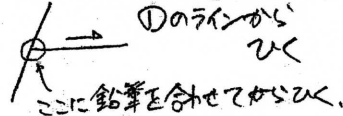 ①のラインから
ひく
ここに鉛筆を合わせてからひく.